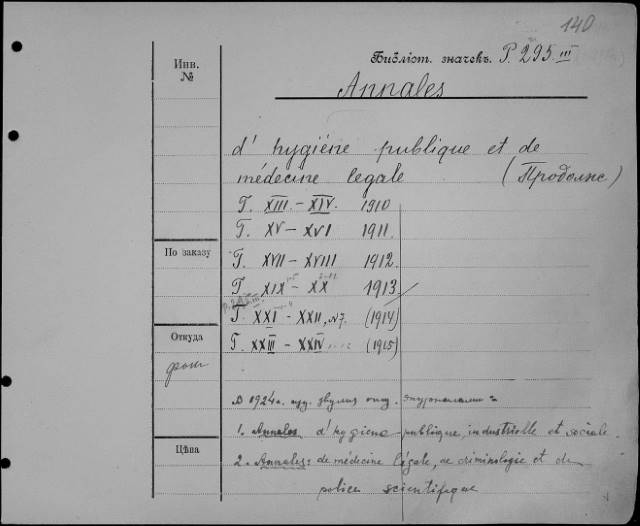 140
Библіот. значекъ. P. 295 III
Инв.
№
Annales
d' hygiéne publique et de
médecine legale (Продолж.)
Т. XIII. – XIV. 1910
Т. XV – XVI 1911.
По заказу
Т. XVII – XVIII 1912.
Т. XIX – XX 1913.
P. 295 III
Т. XXI – XXII, N7. (1914)
Откуда
Т. XXIII – XXIV (1915)
с 1924 г. двумя журналами:
1. Annales d'hygiene publique, industrielle et sociale.
Цѣна
2. Annales: de médecine légale, de criminologie et de
police scientifique